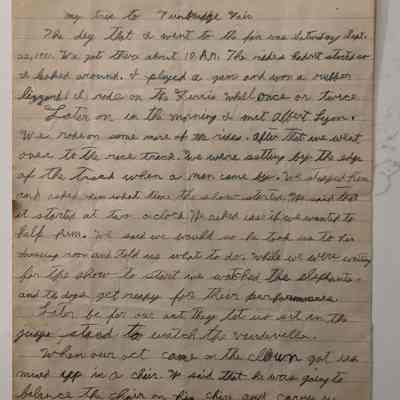 my trip to Tunbridge Fair
The day that I went to the fair was Saturday Sept.
We got there about 10 A.M. The rides hadn't started so
I looked around. I played a game and won a rubber
lizzard. I rode on the Ferris Whell once or twice
Later on in the morning I met Albert Lyon.
We rode on some more of the rides. After that we went
over to the race track. We were setting by the edge
of the track when a man came by. We stopped him
and asked him what time the show started. He said that
it started at two oclock. He asked us if we wanted to
help him. We said we would so he took us to his
dressing room and told us what to do. While we were waiting
for the show to start we watched the elephants
and the dogs get ready for their performances
Later be for our act they let us sit in the
judges stand to watch the vaudeville.
When our act came on the clown got us
mixed up in a chair. He said that he was going to
balance the chair on his chin and carry us